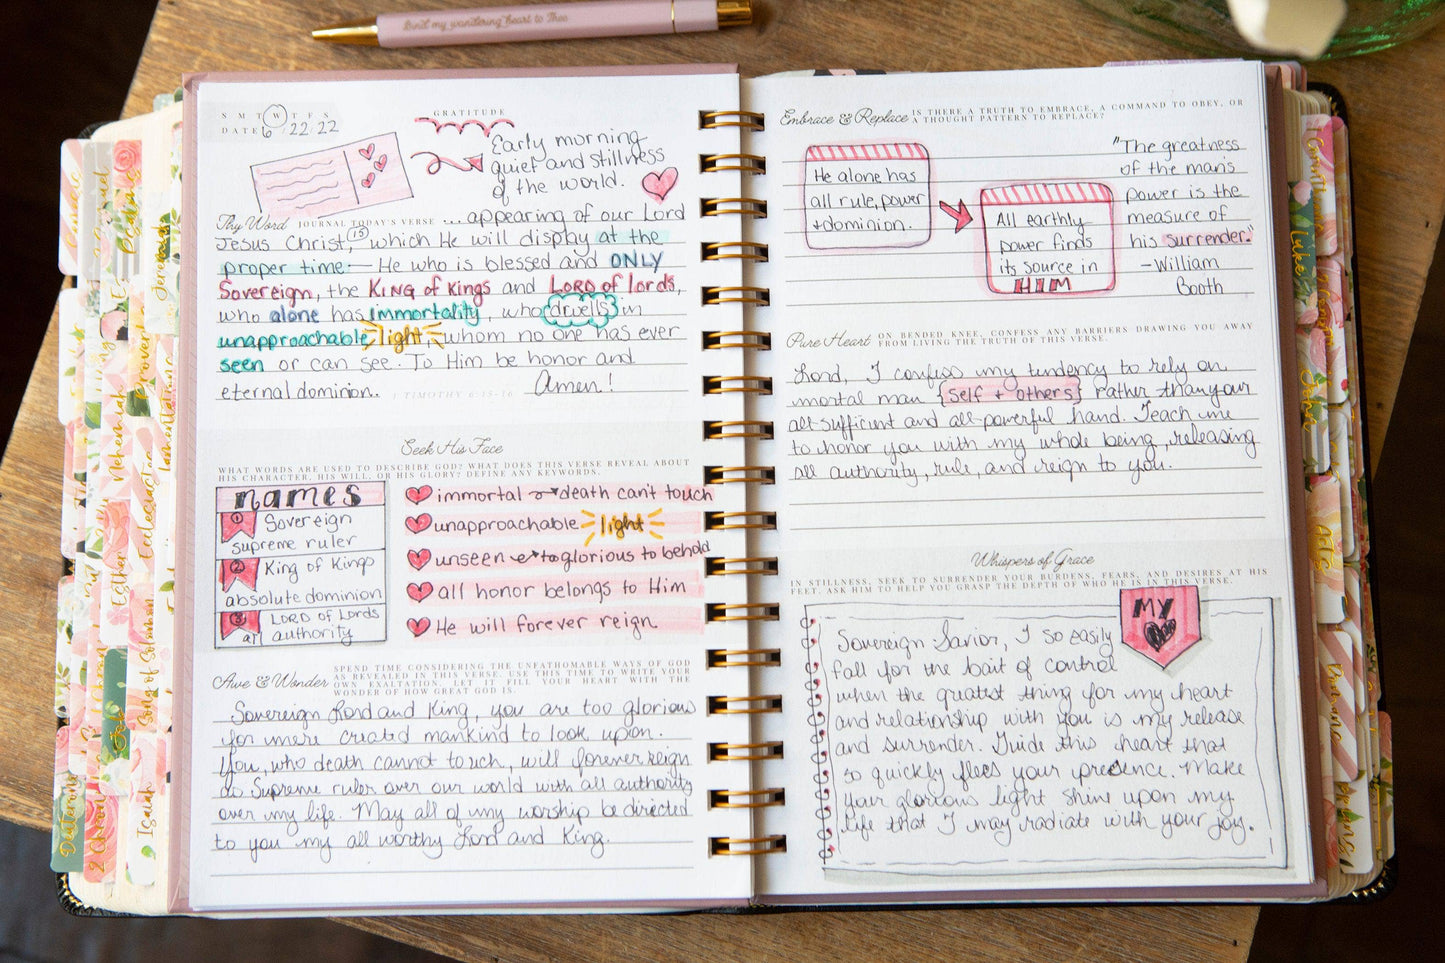 Bind my wandering heart to Thee
S M T W T F S
DATE 6/22/22
GRATITUDE
Early morning
quiet and stillness
of the world.
Thy Word JOURNAL TODAY'S VERSE ... appearing of our Lord
Jesus Christ, (15) which He will display at the
proper time — He who is blessed and ONLY
Sovereign, the KING of KINGS and LORD of lords,
who alone has immortality, who dwells in
unapproachable light, whom no one has ever
seen or can see. To Him be honor and
eternal dominion. 1 TIMOTHY 6:15-16 Amen!
Seek His Face
WHAT WORDS ARE USED TO DESCRIBE GOD? WHAT DOES THIS VERSE REVEAL ABOUT
HIS CHARACTER, HIS WILL, OR HIS GLORY? DEFINE ANY KEYWORDS.
names
1 Sovereign
supreme ruler
2 King of Kings
absolute dominion
3 LORD of LORDS
all authority
immortal → death can't touch
unapproachable light
unseen → to glorious to behold
all honor belongs to Him
He will forever reign
Awe & Wonder SPEND TIME CONSIDERING THE UNFATHOMABLE WAYS OF GOD
AS REVEALED IN THIS VERSE. USE THIS TIME TO WRITE YOUR
OWN EXALTATION. LET IT FILL YOUR HEART WITH THE
WONDER OF HOW GREAT GOD IS.
Sovereign Lord and King, you are too glorious
for mere created mankind to look upon.
You, who death cannot touch, will forever reign
as Supreme ruler over our world with all authority
over my life. May all of my worship be directed
to you my all worthy Lord and King.
Embrace & Replace IS THERE A TRUTH TO EMBRACE, A COMMAND TO OBEY, OR
A THOUGHT PATTERN TO REPLACE?
He alone has
all rule, power
+ dominion.
All earthly
power finds
its source in
HIM
"The greatness
of the man's
power is the
measure of
his surrender."
-William
Booth
Pure Heart ON BENDED KNEE, CONFESS ANY BARRIERS DRAWING YOU AWAY
FROM LIVING THE TRUTH OF THIS VERSE.
Lord, I confess my tendency to rely on
mortal man {self + others} rather than your
all-sufficient and all-powerful hand. Teach me
to honor you with my whole being, releasing
all authority, rule, and reign to you.
Whispers of Grace
IN STILLNESS, SEEK TO SURRENDER YOUR BURDENS, FEARS, AND DESIRES AT HIS
FEET. ASK HIM TO HELP YOU GRASP THE DEPTH OF WHO HE IS IN THIS VERSE.
MY
Sovereign Savior, I so easily
fall for the bait of control
when the greatest thing for my heart
and relationship with you is my release
and surrender. Guide this heart that
so quickly flees your presence. Make
your glorious light shine upon my
life that I may radiate with your joy.
Exodus
Jeremiah
Nehemiah
Proverbs
Lamentations
Esther
Ecclesiastes
Song of Solomon
Isaiah
2 Chron
Luke
John
Acts
Romans